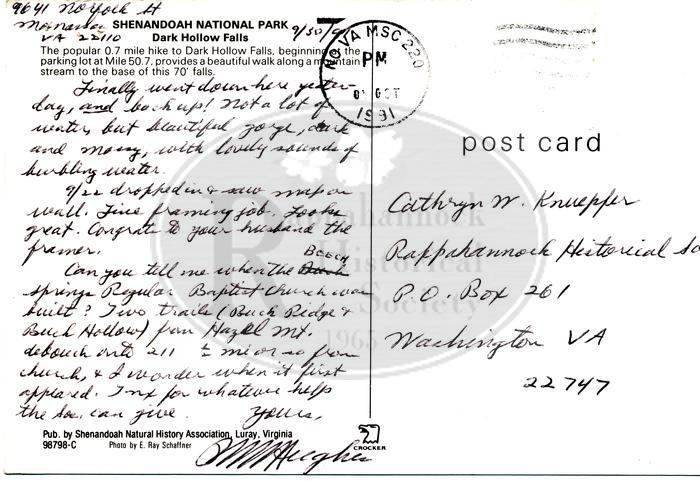 9641 Norfolk St
Manassas
VA 22110
9/30/91
SHENANDOAH NATIONAL PARK
Dark Hollow Falls
The popular 0.7 mile hike to Dark Hollow Falls, beginning at the
parking lot at Mile 50.7, provides a beautiful walk along a mountain
stream to the base of this 70' falls.
Finally went down here yester-
day, and back up! Not a lot of
water, but beautiful gorge, dark
and mossy, with lovely sounds of
burbling water.
9/22 dropped in & saw map on
wall. Fine framing job. Looks
great. Congrats to your husband the
framer.
Can you tell me when the Beech
Springs Regular Baptist Church was
built? Two trails (Buck Ridge &
Buck Hollow) from Hazel Mt.
debouch onto 211 ½ mi or so from
church, & I wonder when it first
appeared. Tnx for whatever help
the soc. can give.
Yours,
Hughes
Pub. by Shenandoah Natural History Association, Luray, Virginia
98798-C Photo by E. Ray Schaffner
NOVA MSC 220
PM
OCT
1991
post card
Cathryn W. Knuepfer
Rappahannock Historical So
P.O. Box 261
Washington VA
22747
CROCKER
Rappahannock
Historical
Society
1965